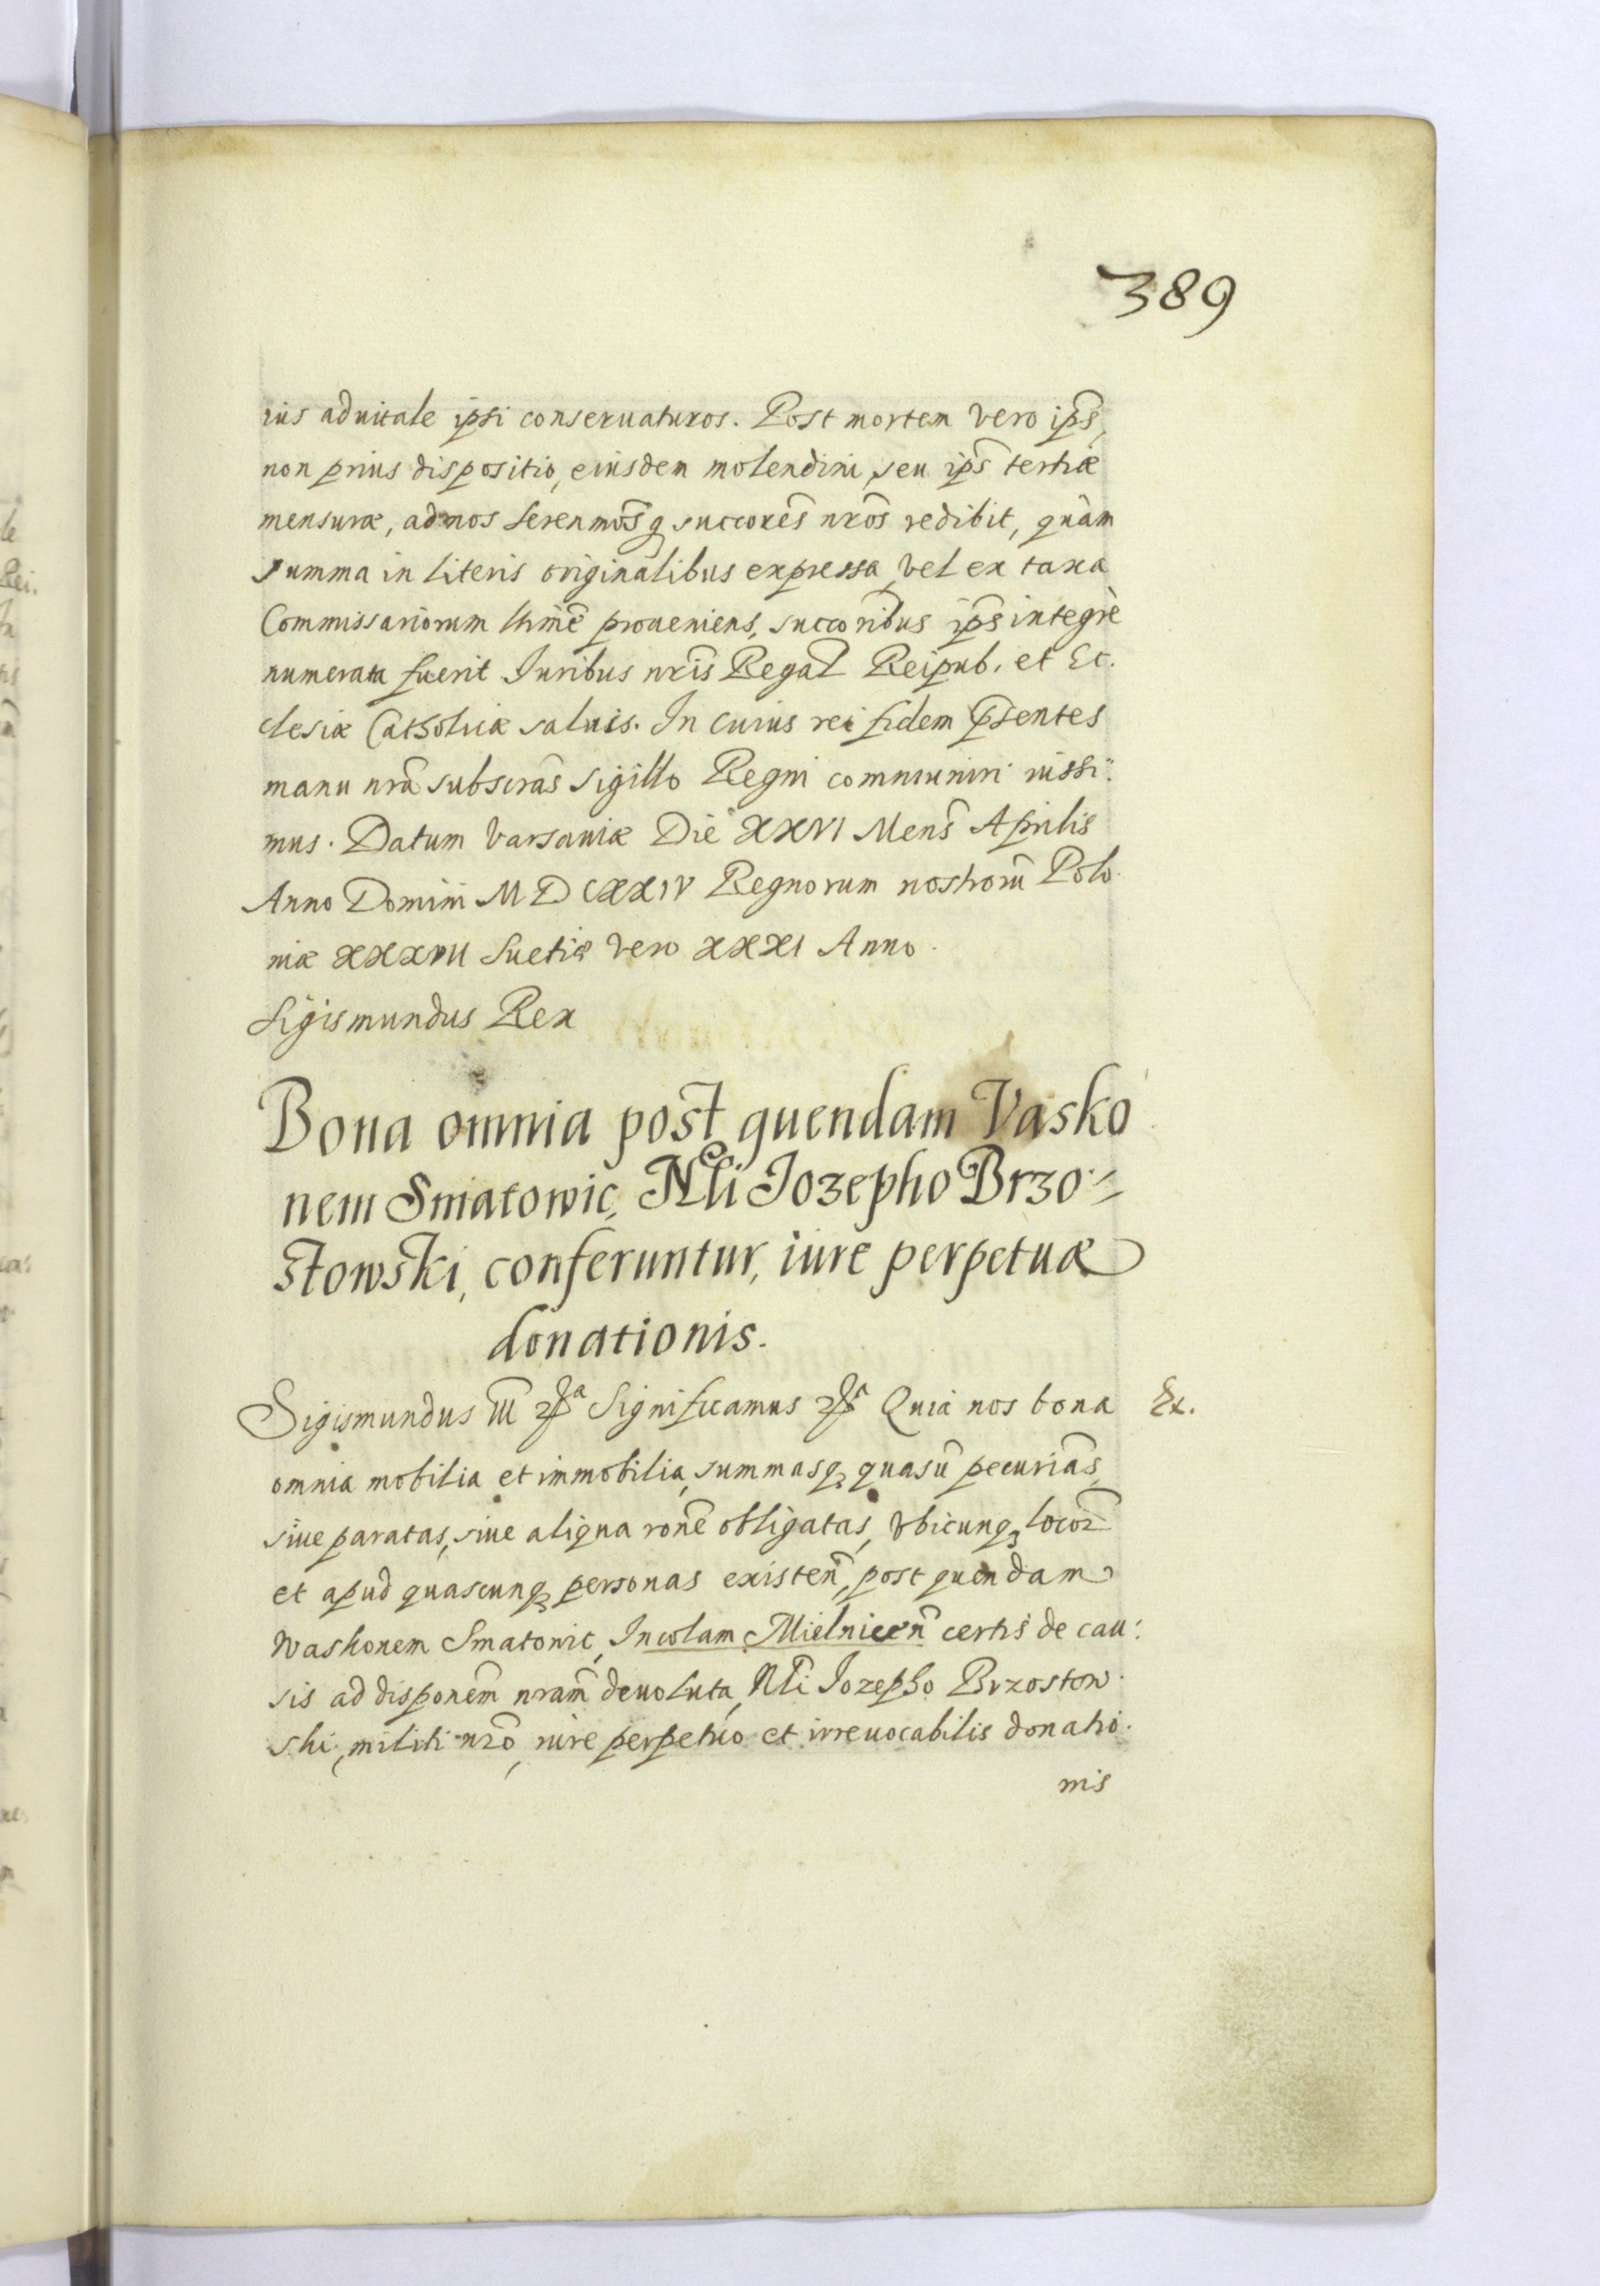 389
ius aduitale ipsi conseruaturos. Post mortem vero ips̃,
non prius dispositio, eiusdem molendini, seu ips̃ tertiæ
mensuræ, ad nos Serenmõsq succorẽs nrõs redibit, quàm
summa in literis originalibus expressa, vel ex taxa
Commissariorum proueniens, succoribus ips̃ integrè
numerata fuerit Iuribus nrĩs Regal Reipub. et Ec.
clesiæ Catholicæ saluis. In cuius rei fidem p̃sentes
manu nrã subscrãs sigillo Regni communiri iussi:
mus. Datum Varsauiæ Die XXVI Mens̃ Aprilis
Anno Domini MDCXXIV Regnorum nostrorũ Polo
niæ XXXVII Suetiæ vero XXXI Anno.
Sigismundus Rex
Bona omnia post quendam Vasko
nem Smatowic, Nli Iozepho Brzo=
stowski, conferuntur, iure perpetuæ
donationis.
Sigismundus III Significamus Quia nos bona Ex.
omnia mobilia et immobilia, summasq quasũ pecuniãs,
siue paratas, siue aliqua ronẽ obligatas, vbicunq locor̃
et apud quascunq personas existeñ, post quendam
Waskonem Smatowic, Incolam Mielniceñ certis de cau:
sis ad disponẽm nram̃ deuoluta, Nli Iozepho Brzostow
ski, militi nrõ, iure perpetuo et irreuocabilis donatio.
nis